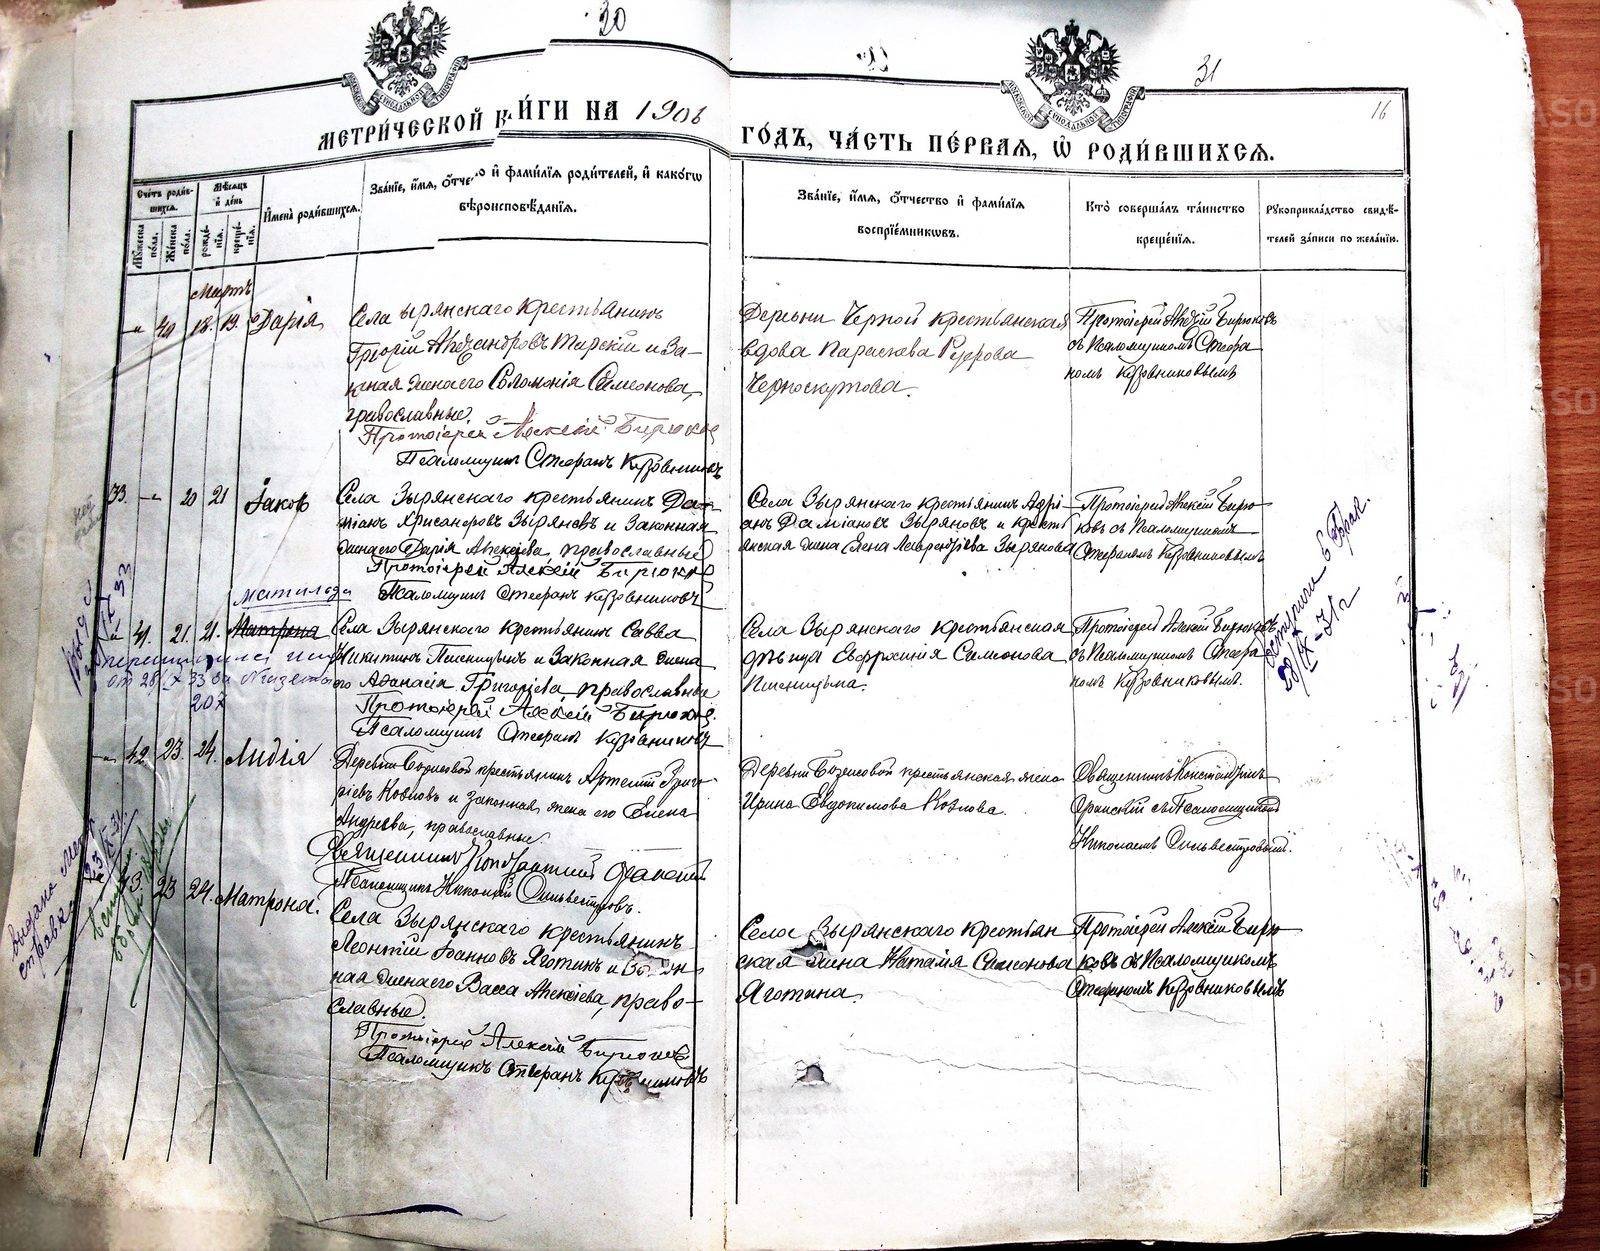 30
31
16
МЕТРИ́ЧЕСКОЙ К ИГИ НА 1906
ГО́ДЪ, ЧА́СТЬ ПЕ́РВАЯ, Ѡ РОДИ́ВШИХСЯ.
Сче́тъ роди́в-
шихся.
Мꙋ́жеска по́ла.
Же́нска по́ла.
Мѣ́сяцъ и де́нь
рожде́-нїя.
креще́-нїя.
И҆мена̀ роди́вшихся.
Зва́нїе, и҆́мя, ѻ҆́тче о и҆ фами́лїя роди́телей, и҆ како́гѡ
вѣроисповѣ́данїя.
Зва́нїе, и҆́мя, ѻ҆́тчество и҆ фами́лїя
воспрїе́мникѡвъ.
Кто̀ соверша́лъ та́инство
креще́нїя.
Рꙋкоприкла́дство свидѣ́-
телей за́писи по жела́нїю.
Мартъ
" 40 18. 19. Дарія
Села Зырянскаго крестьянинъ
Григорій Александровъ Тирскій и За-
конная жена его Соломонія Симеонова,
православные.
Протоіерей Алексій Бирюковъ
Псаломщикъ Стефанъ Кузовниковъ
Деревни Черной крестьянская
вдова Параскева
Черноскутова.
Протоіерей Алексій Бирюковъ
съ Псаломщикомъ Стефа
номъ Кузовниковымъ
33. " 20 21 Іаковъ
Села Зырянскаго крестьянинъ Да-
міанъ Хрисанфовъ Зыряновъ и Законная
жена его Дарія Алексіева, православные
Протоіерей Алексій Бирюковъ
Псаломщикъ Стефанъ Кузовниковъ
Села Зырянскаго крестьянинъ Адрі-
анъ Даміановъ Зыряновъ и кресть
янская жена Елена Лаврентіева Зырянова
Протоіерей Алексій Бирю
ковъ съ Псаломщикомъ
Стефаномъ Кузовниковымъ
Матильда
" 41. 21. 21. Матрона
Села Зырянскаго крестьянинъ Савва
Никитинъ Пшеницынъ и Законная жена
его Аѳанасія Григоріева, православные
Протоіерей Алексій Бирюковъ.
Псаломщикъ Стефанъ Кузовниковъ
Села Зырянскаго крестьянская
дѣвица Евфросинія Симеонова
Пшеницына.
Протоіерей Алексій Бирюковъ
съ Псаломщикомъ Стефа
номъ Кузовниковымъ.
вступили в брак.
28/IX-31 г
" 42 23. 24. Лидія
Деревни крестьянинъ Артемій Григо
ріевъ Козловъ и Законная жена его Елена
Андреева, православные
Священникъ Константинъ
Псаломщикъ Николай Сильвестровъ.
Деревни крестьянская жена
Ирина Евдокимова Козлова.
Священникъ Константинъ
съ Псаломщикомъ
Николаемъ Сильвестровымъ.
43. 23 24. Матрона.
Села Зырянскаго крестьянинъ
Леонтій Іоанновъ Яготинъ и
ная жена его Васса Алексіева, право-
славные.
Протоіерей Алексій Бирюковъ
Псаломщикъ Стефанъ Кузовниковъ
Села Зырянскаго крестьян
ская жена Наталія Симеонова
Яготина.
Протоіерей Алексій Бирю
ковъ съ Псаломщикомъ
Стефаномъ Кузовниковымъ
выдана
справка